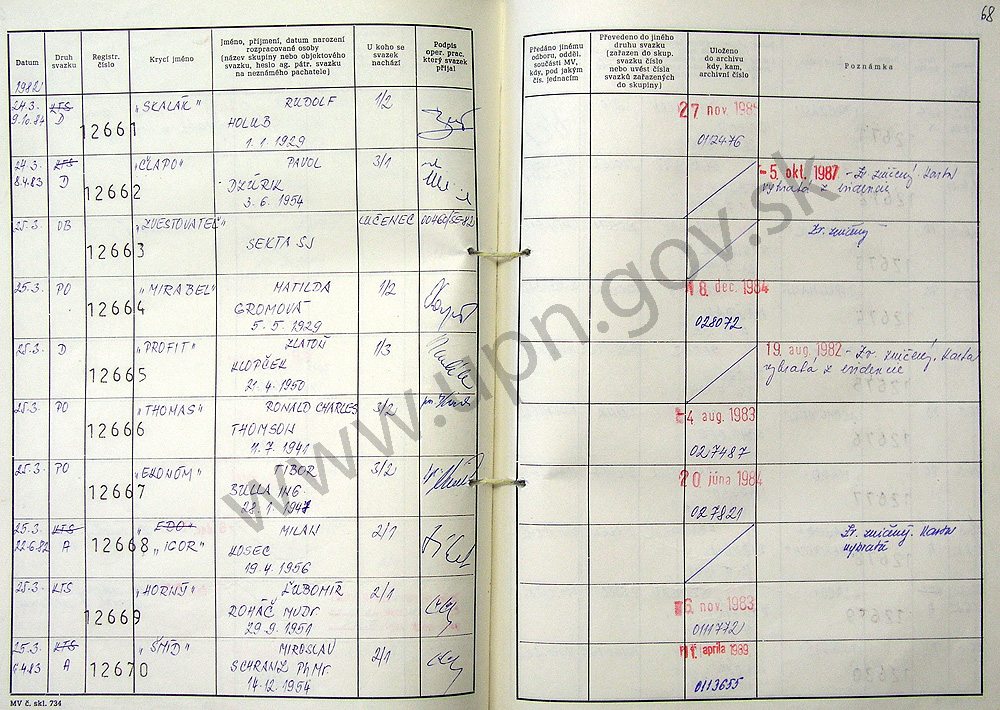 68
Datum
Druh svazku
Registr. číslo
Krycí jméno
Jméno, příjmení, datum narození
rozpracované osoby
(název skupiny nebo objektového
svazku, heslo ag. pátr. svazku
na neznámého pachatele)
U koho se
svazek
nachází
Podpis
oper. prac.
který svazek
přijal
Předáno jinému
odboru, odděl.
součásti MV,
kdy, pod jakým
čís. jednacím
Převedeno do jiného
druhu svazku
(zařazen do skup.
svazku číslo
nebo uvést čísla
svazků zařazených
do skupiny)
Uloženo
do archivu
kdy, kam,
archivní číslo
Poznámka
1982
24.3. KTS "SKALÁK" RUDOLF 1/2
9.10.84 D 12661 HOLUB
1.1.1929
27 nov. 1985
012476
24.3. KTS "ČLAPO" PAVOL 3/1
8.4.83 D 12662 DZÚRIK
3.6.1954
-5. okt. 1987 - Zv. zničený. Karta
vybratá z evidencie
25.3. OB "ZVESTOVATEĽ" LUČENEC
12663 SEKTA SJ
Zv. zničený
25.3. PO "MIRABEL" MATILDA 1/2
12664 GROMOVÁ
5.5.1929
18. dec. 1984
028072
25.3. D "PROFIT" ZLATOŇ 1/3
12665 KLOPČEK
21.4.1950
19. aug. 1982 - Zv. zničený. Karta
vybratá z evidencie
25.3. PO "THOMAS" RONALD CHARLES 3/2
12666 THOMSON
11.7.1941
-4 aug. 1983
027487
25.3. PO "EKONÓM" TIBOR 3/2
12667 BULLA ING.
28.1.1947
20 júna 1984
027821
25.3. KTS "EDO" MILAN 2/1
22.6.82 A 12668 "IGOR" KOSEC
19.4.1956
Zv. zničený. Karta
vybratá
25.3. KTS "HORNÝ" ĽUBOMÍR 2/1
12669 ROHÁČ MUDr
29.9.1951
16. nov. 1983
0111772
25.3. KTS "ŠMÍD" MIROSLAV 2/1
4.83 A 12670 SCHRANZ PhMr.
14.12.1954
11. apríla 1989
0113655
MV č. skl. 734
www.upn.gov.sk